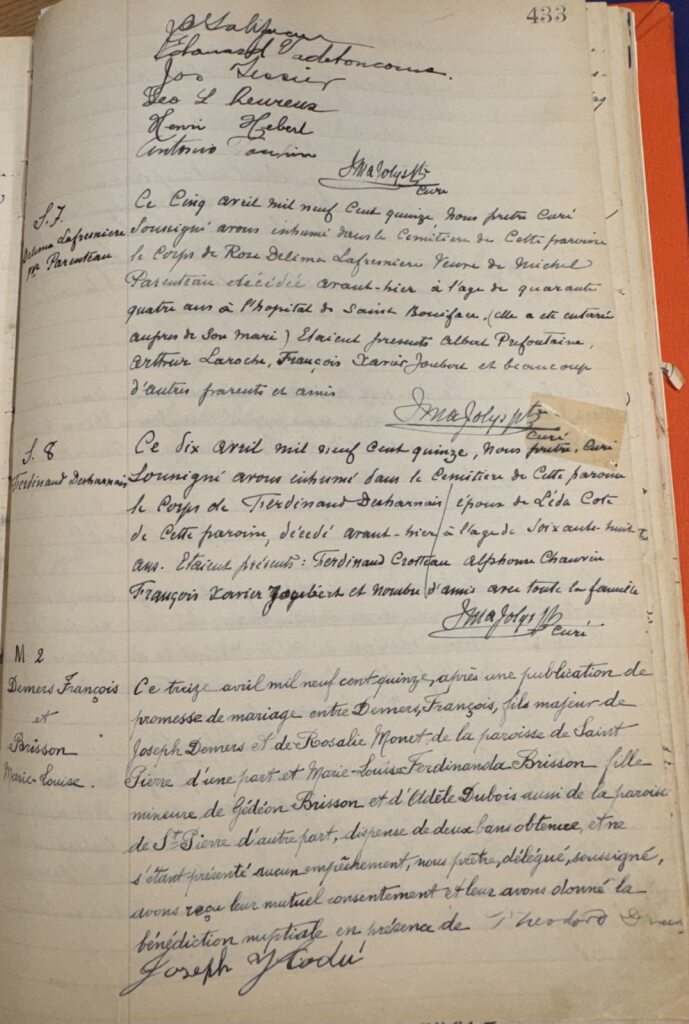 433
Edouard Vadeboncoeur.
Jos Tessier
Geo L'heureux
Henri Hebert
Antonio
JMaJolys ptre
Curé
S. 7
Delima Lafreniere
Parenteau
Ce Cinq avril mil neuf Cent quinze Nous pretre Curé
Soussigné avons inhumé dans le Cemitière de Cette paroisse
le Corps de Rose Delima Lafreniere Veuve de Michel
Parenteau décédée avant-hier à l'age de quarante
quatre ans à l'hopital de Saint Boniface. (elle a ete enterrée
aupres de Son mari) Etaient presents Albert Prefontaine,
Arthur Laroche, François Xavier Joubert et beaucoup
d'autres parents et amis
JMaJolys ptre
Curé
S. 8
Ferdinand Desharnais
Ce dix avril mil neuf Cent quinze, Nous pretre, Curé
Soussigné avons inhumé dans le Cemitière de Cette paroisse
le Corps de Ferdinand Desharnais époux de Léda Cote
de Cette paroisse, décédé avant-hier à l'age de Soixante-huit
ans. Etaient présents: Ferdinand Crotteau Alphonse Chauvin
François Xavier Joubert et Nombre d'amis avec toute la famille
JMaJolys ptr
Curé
M 2
Demers François
et
Brisson
Marie-Louise.
Ce treize avril mil neuf cent quinze, après une publication de
promesse de mariage entre Demers, François, fils majeur de
Joseph Demers et de Rosalie Monet de la paroisse de Saint
Pierre d'une part et Marie-Louise Ferdinanda Brisson fille
mineure de Gédéon Brisson et d'Adèle Dubois aussi de la paroisse
de St-Pierre d'autre part, dispense de deux bans obtenue, et ne
s'étant présenté aucun empêchement, nous prêtre, délégué, soussigné,
avons reçu leur mutuel consentement et leur avons donné la
bénédiction nuptiale en présence de Theodore
Joseph